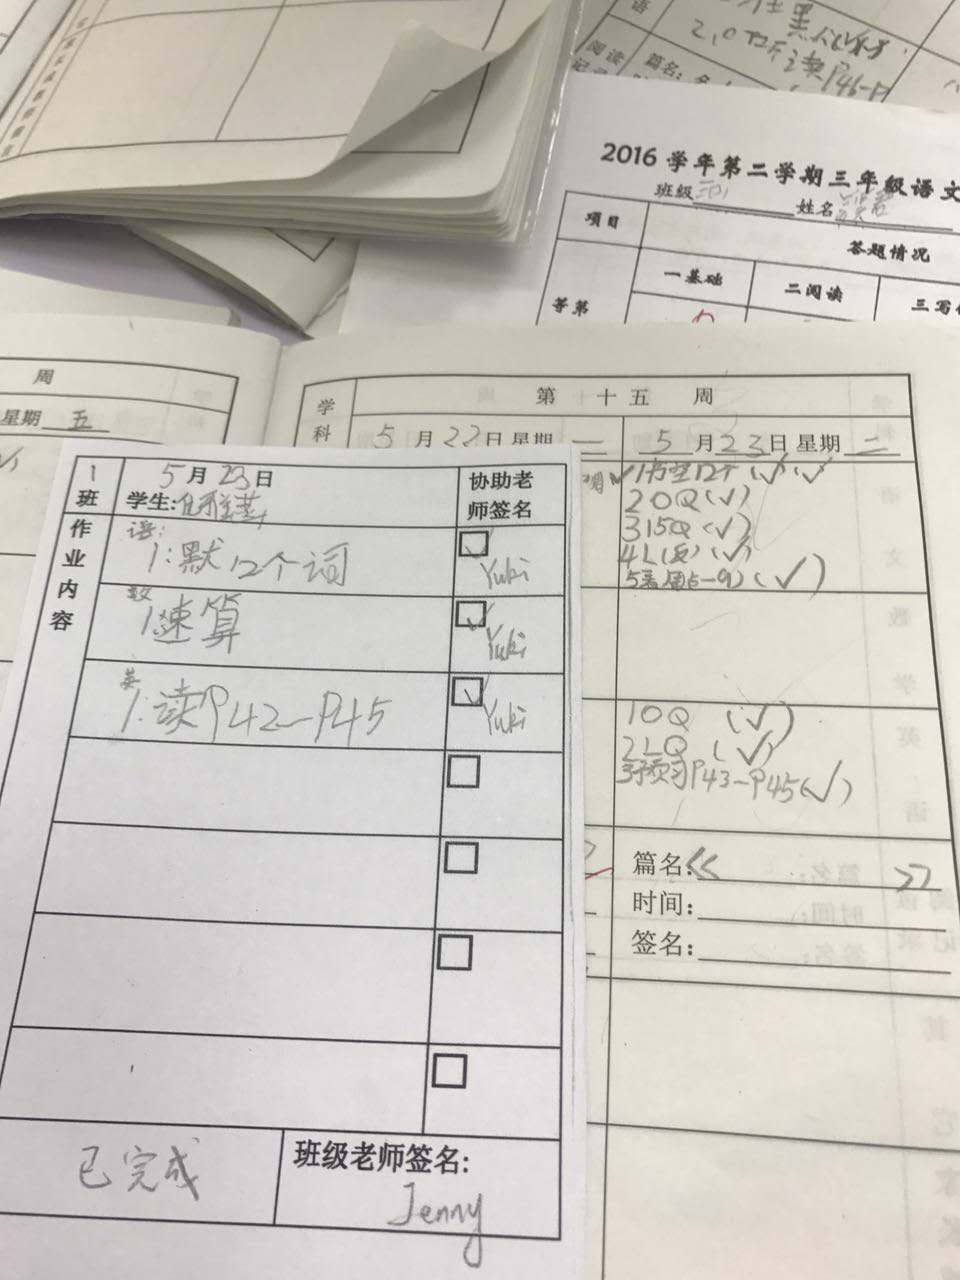 2016 学年第二学期三年级语文
班级
姓名
项目
答题情况
等第
一基础
二阅读
三写
阅读
篇名:
周
星期 五
学科
第 十五 周
5 月 22 日 星期 一
5 月 23 日 星期 二
2 0Q (✓)
3 15Q (✓)
1 0Q (✓)
2 LQ (✓)
3 预习P43—P45(✓)
篇名:《 》
时间:
签名:
1班
5月23日
学生:
协助老师签名
作业内容
语:
1:默12个词
Yuki
数
1.速算
Yuki
英
1:读P42—P45
Yuki
已完成
班级老师签名:
Jenny